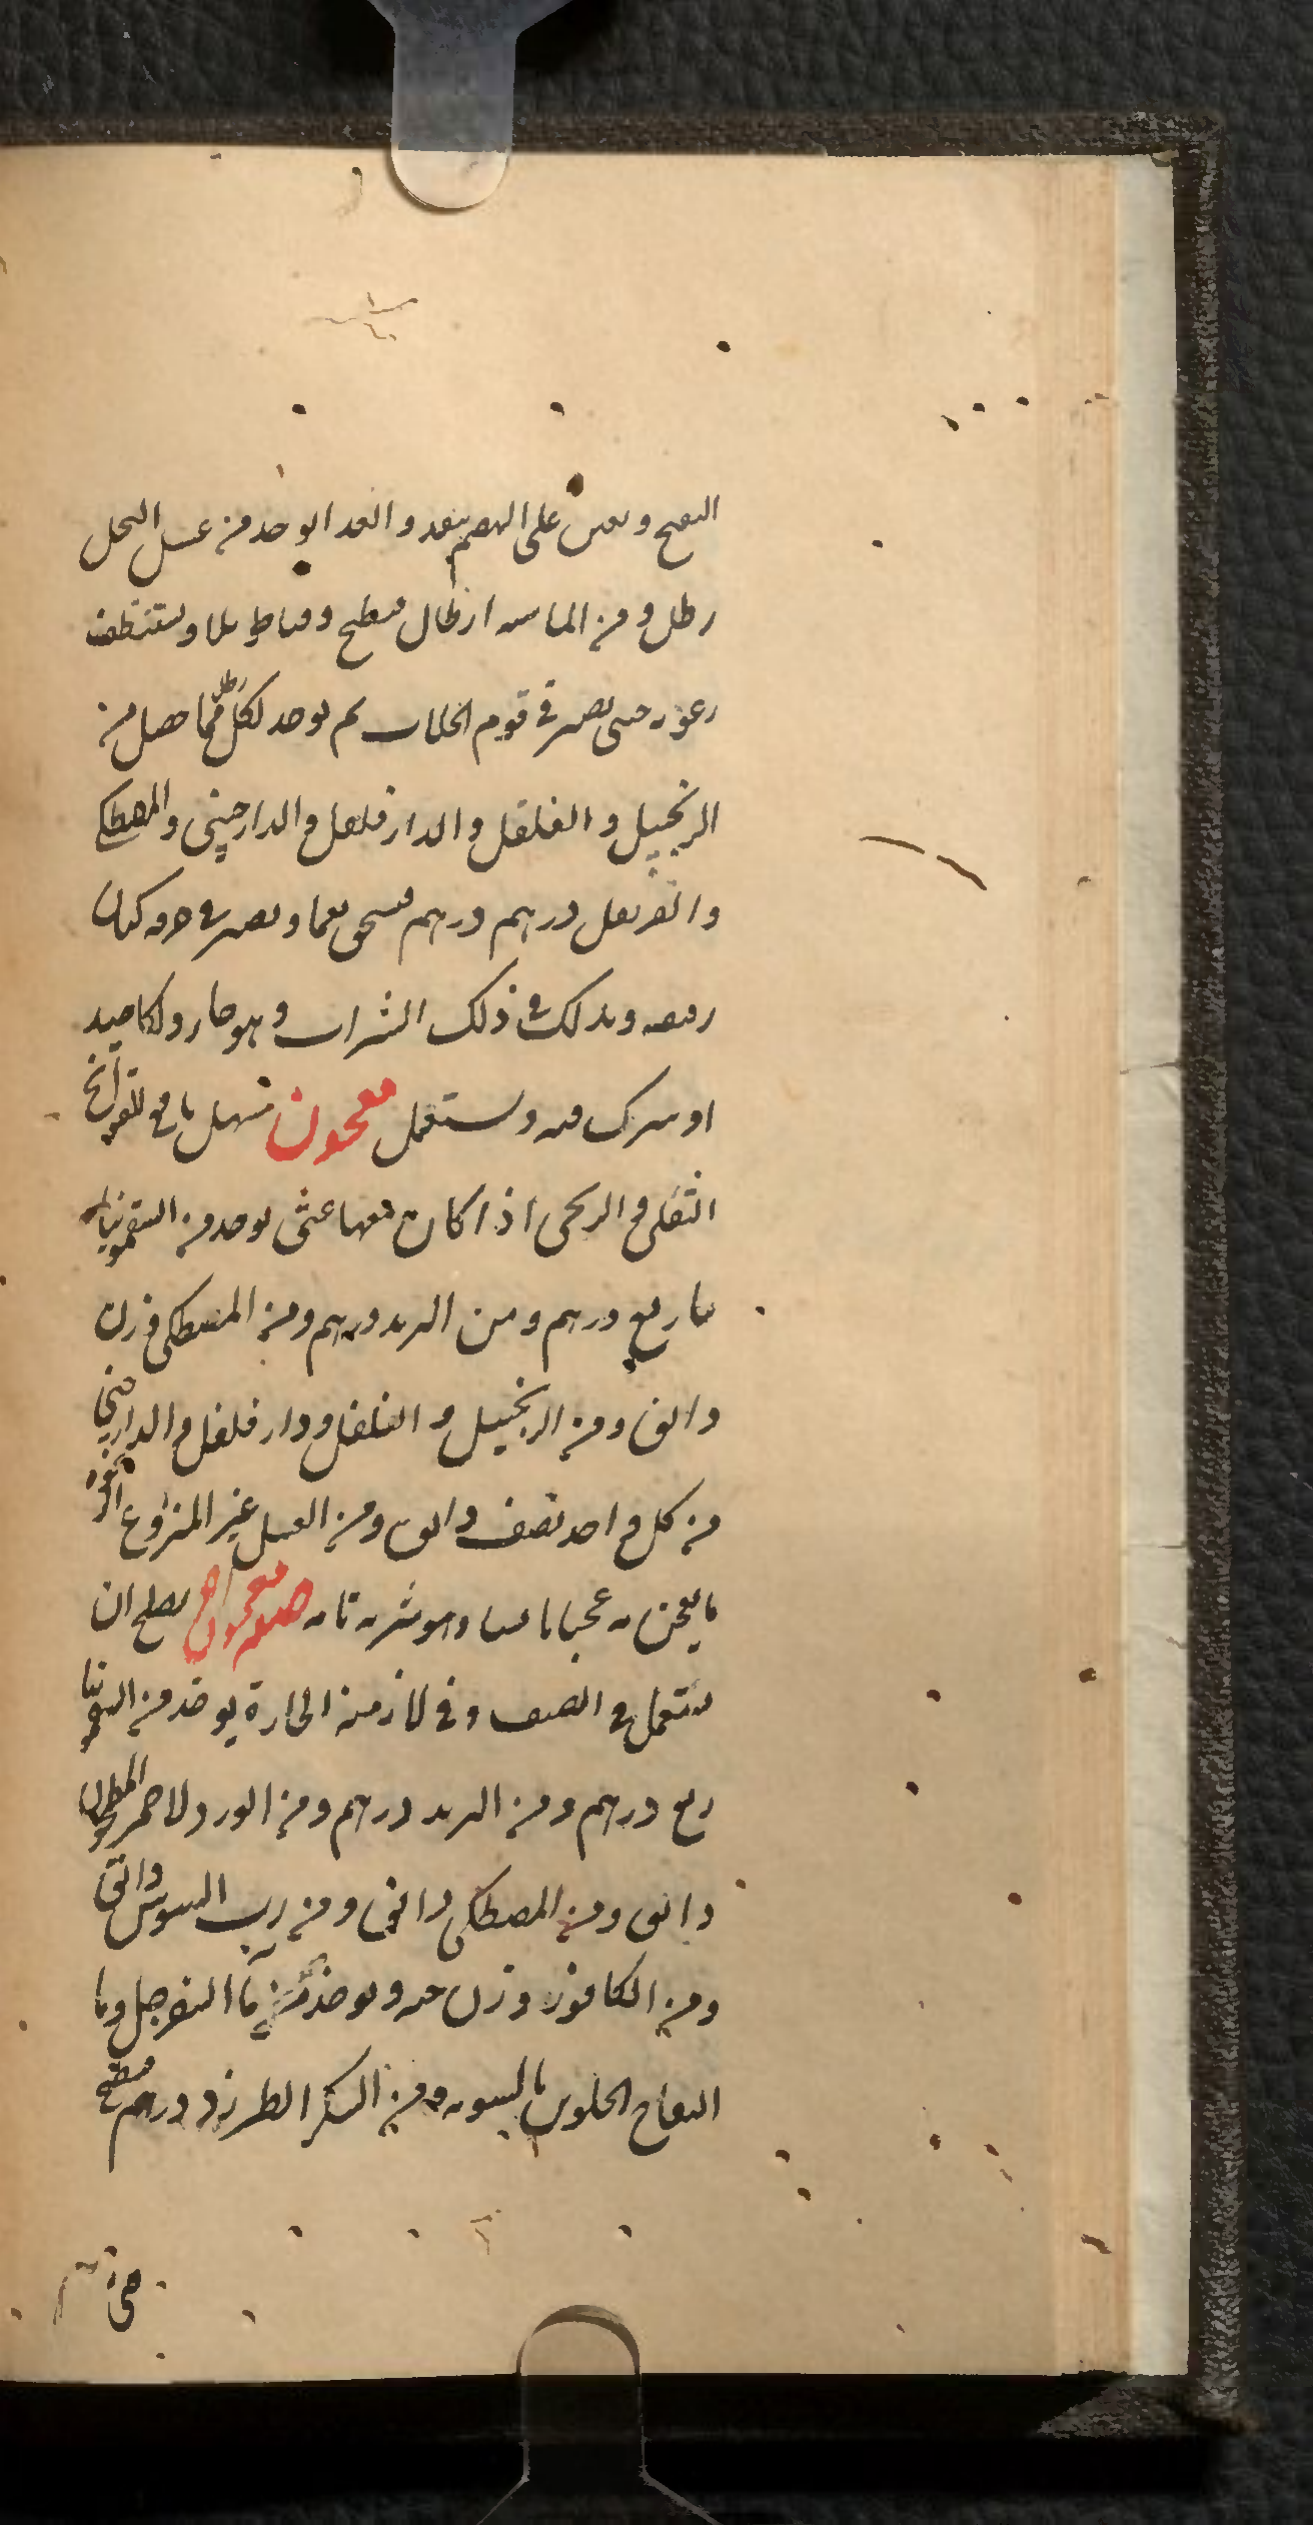 النفخ ويعين على الهضم بعد والغدا يوخذ من عسل النحل
رطل ومن الما ارطال فيطبخ ويستنظف
رغوته حتى يصير فى قوم الجلاب ثم يوخذ لكل رطل مما حصل من
الزنجبيل والفلفل والدار فلفل والدارچينى والمصطكى
والقرنفل درهم درهم فيسحق نعما ويصر فى خرقه كتان
رفيعه ويدلك فى ذلك الشراب وهو حار ولكا جيد
او يترك فيه ويستعمل معجون مسهل نافع للقولنج
الثفلى والريحى اذا كان معها غثى يوخذ من السقمونيا
ربع درهم ومن التربد درهم ومن المصطكى وزن
دانق ومن الزنجبيل والفلفل ودار فلفل والدارچينى
من كل واحد نصف دانق ومن العسل غير المنزوع الرغوة
ما يعجن به عجنا وهو شربه تامه صفه معجون يصلح ان
يستعمل فى الصيف وفى الازمنة الحارة يوخذ من السقمونيا
ربع درهم ومن التربد درهم ومن الورد الاحمر المطحون
دانق ومن المصطكى دانق ومن رب السوس دانق
ومن الكافور وزن حبه ويوخذ من ما السفرجل وما
التفاح الحلو بالسويه ومن السكر الطبرزد درهم فيطبخ
حتى